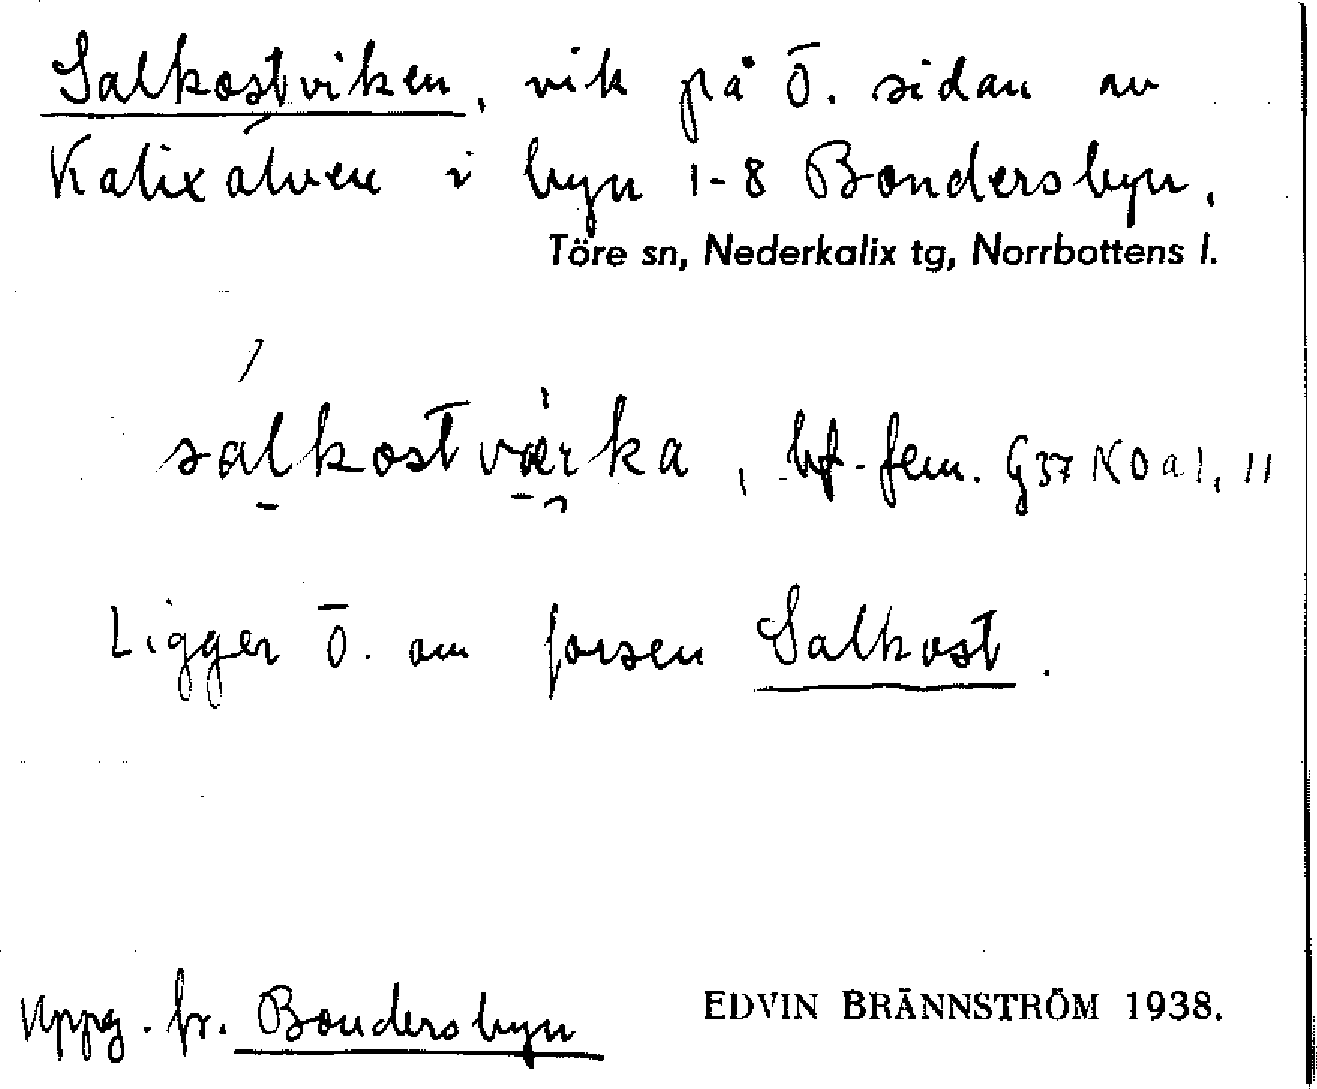 Salkostviken, vik på ö. sidan av
Kalixälven i byn 1-8 Bondersbyn.
Töre sn, Nederkalix tg, Norrbottens l.
salkostværka, bf. fem. G37 NO a 1, 11
Ligger ö. om forsen Salkost.
Uppg. fr. Bondersbyn
EDVIN BRÄNNSTRÖM 1938.